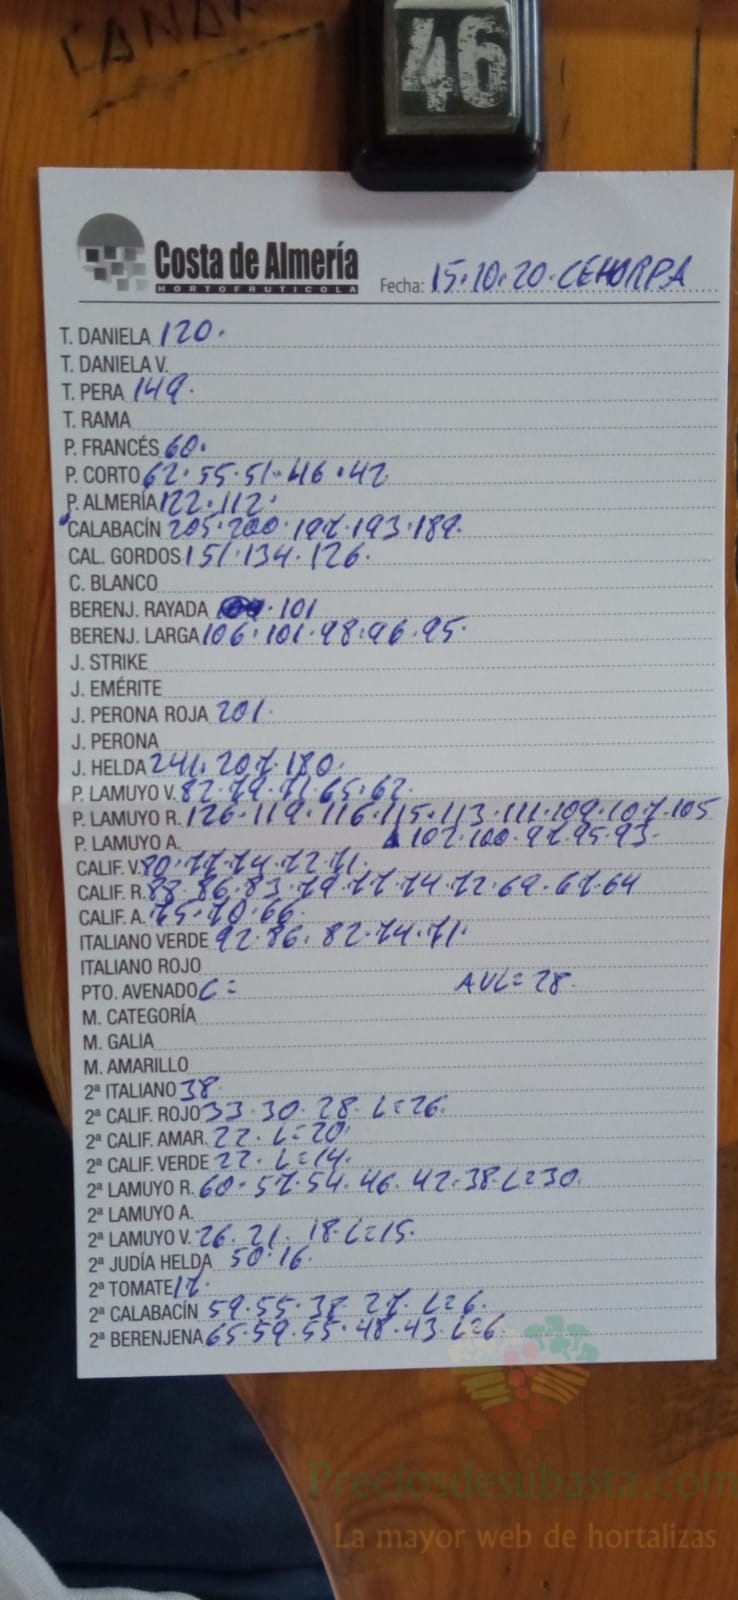 CANAR
46
Costa de Almería
HORTOFRUTICOLA
Fecha: 15.10.20.CEHORPA
T. DANIELA 120.
T. DANIELA V.
T. PERA 149.
T. RAMA
P. FRANCÉS 60.
P. CORTO 62.55.51.46.42
P. ALMERÍA 122.112.
CALABACÍN 205.200.197.193.189.
CAL. GORDOS 151.134.126.
C. BLANCO
BERENJ. RAYADA .101
BERENJ. LARGA 106.101.98.96.95.
J. STRIKE
J. EMÉRITE
J. PERONA ROJA 201.
J. PERONA
J. HELDA 241.207.180.
P. LAMUYO V. 82.79.71.65.62.
P. LAMUYO R. 126.119.116.115.113.111.109.107.105
P. LAMUYO A. 102.100.97.95.93.
CALIF. V. 80.77.74.72.71.
CALIF. R. 88.86.83.79.77.74.72.69.67.64
CALIF. A. 75.70.66.
ITALIANO VERDE 92.86.82.74.71.
ITALIANO ROJO
PTO. AVENADO C= AVL=28.
M. CATEGORÍA
M. GALIA
M. AMARILLO
2ª ITALIANO 38
2ª CALIF. ROJO 33.30.28.L=26.
2ª CALIF. AMAR. 22.L=20.
2ª CALIF. VERDE 22.L=14.
2ª LAMUYO R. 60.57.54.46.42.38.L=30.
2ª LAMUYO A.
2ª LAMUYO V. 26.21.18.L=15.
2ª JUDÍA HELDA 50.16.
2ª TOMATE 17.
2ª CALABACÍN 59.55.38.27.L=6.
2ª BERENJENA 65.59.55.48.43.L=6.
Preciosdesubasta.com
La mayor web de hortalizas